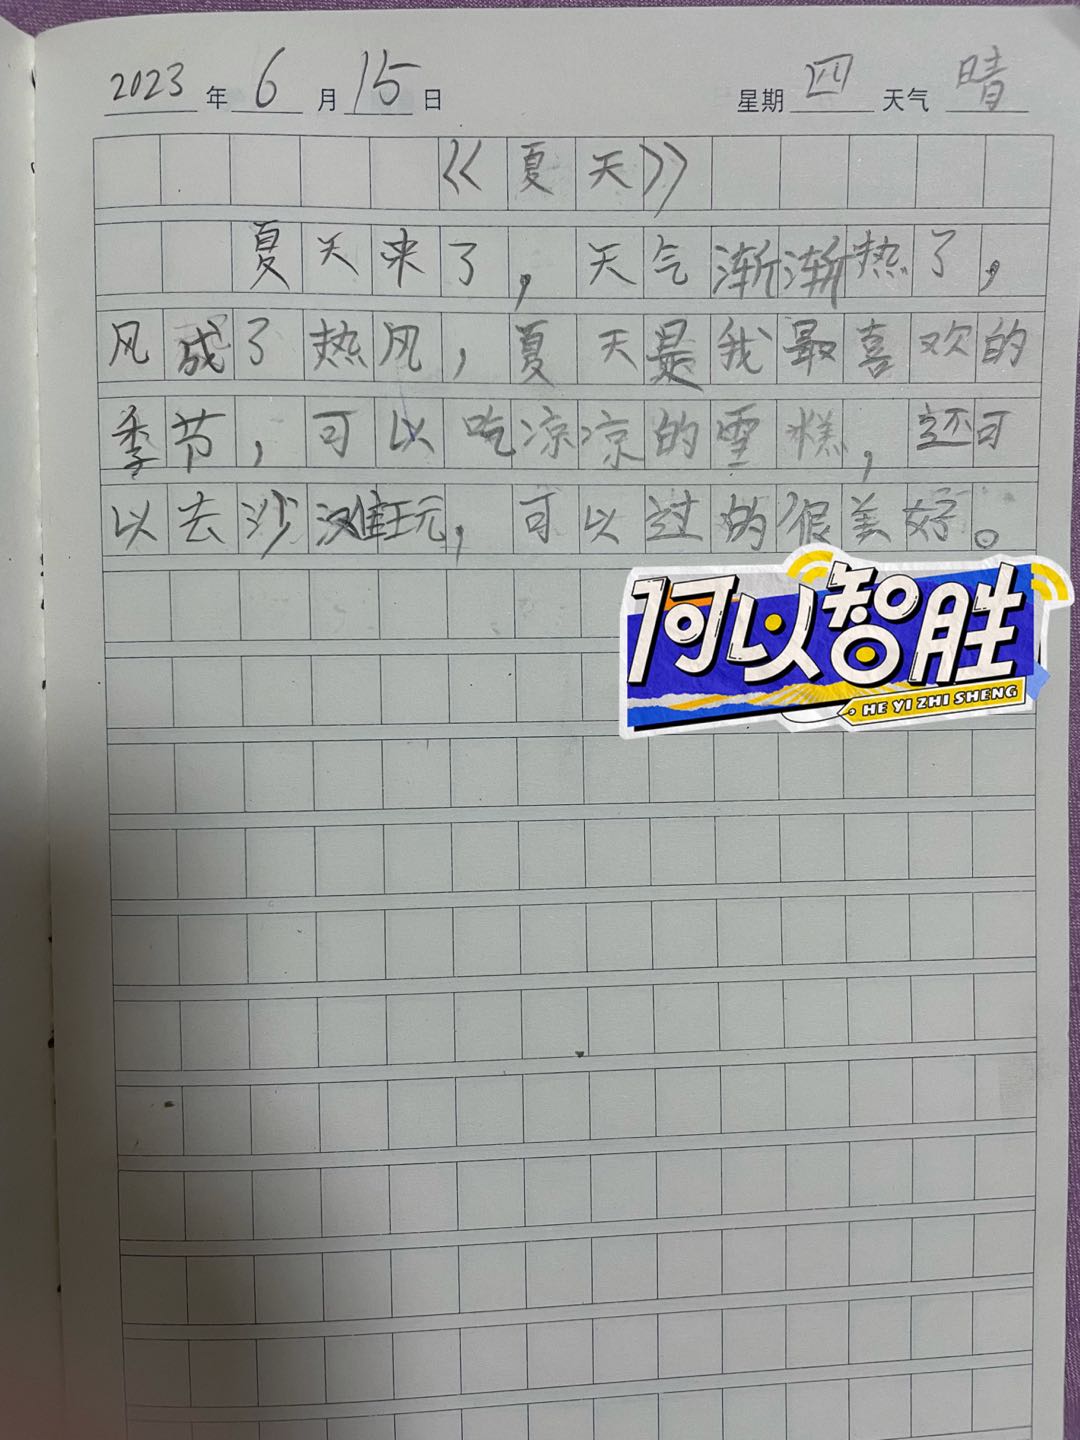 2023年6月15日 星期四 天气晴
《夏天》
夏天来了，天气渐渐热了，
风成了热风，夏天是我最喜欢的
季节，可以吃凉凉的雪糕，还可
以去沙滩玩，可以过的很美好。
何以智胜
HE YI ZHI SHENG